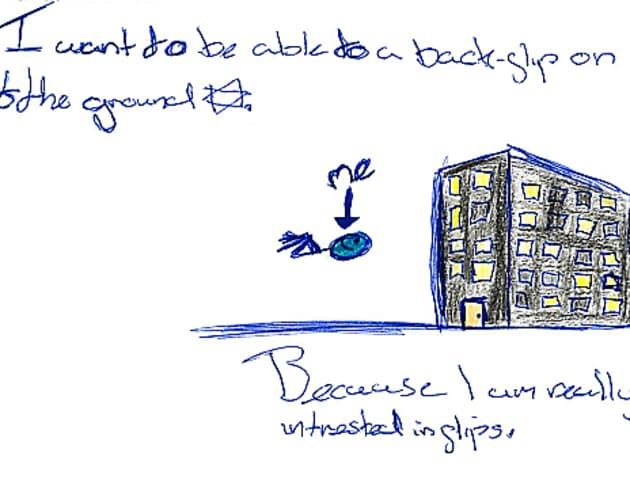 I want to be able to a back-flip on
to the ground.
me
Because I am really
intrested in flips.